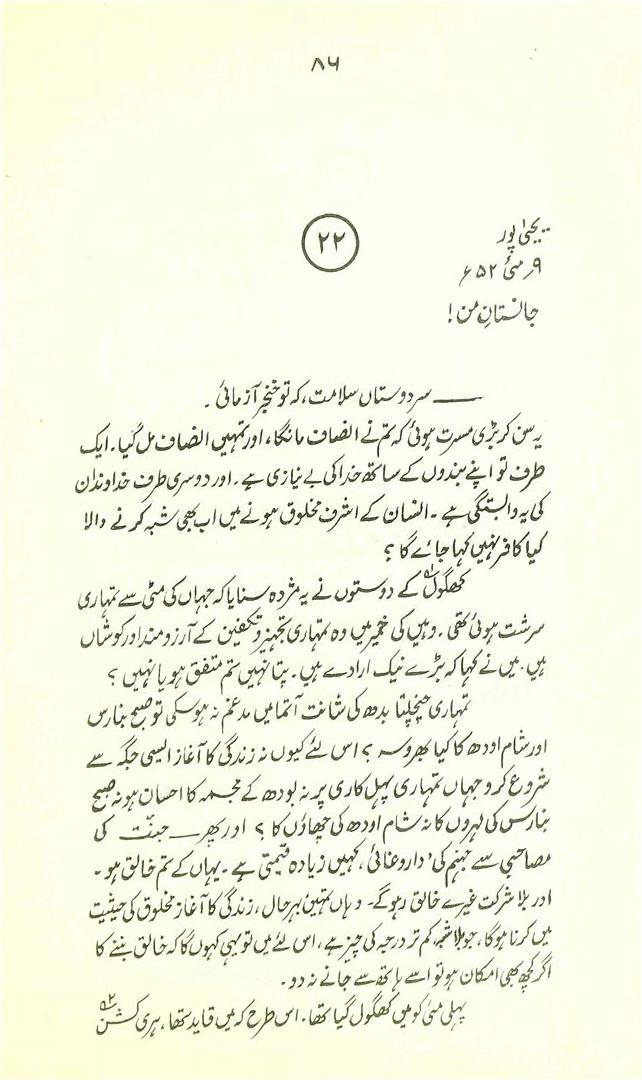 ۸۶
۲۲
یحییٰ پور
۹؍ مئی ۶۵۲
جانستانِ من!
—— سر دوستاں سلامت، کہ تو خنجر آزمائی۔
یہ سن کر بڑی مسرت ہوئی کہ تم نے انصاف مانگا، اور تمہیں انصاف مل گیا۔ ایک
طرف تو اپنے بندوں کے ساتھ خدا کی بے نیازی ہے۔ اور دوسری طرف خداوندان
کی یہ وابستگی ہے۔ انسان کے اشرف مخلوق ہونے میں اب بھی شبہ کرنے والا
کیا کافر نہیں کہا جائے گا؟
کھگول۱ کے دوستوں نے یہ مژدہ سنایا کہ جہاں کی مٹی سے تمہاری
سرشت ہوئی تھی۔ وہیں کی خمیر میں وہ تمہاری تجہیز و تکفین کے آرزومند اور کوشاں
ہیں۔ میں نے کہا کہ بڑے نیک ارادے ہیں۔ پتا نہیں تم متفق ہو یا نہیں؟
تمہاری چنچلتا بدھ کی شانت آتما میں مدغم نہ ہو سکی تو صبح بنارس
اور شام اودھ کا کیا بھروسہ؟ اس لئے کیوں نہ زندگی کا آغاز ایسی جگہ سے
شروع کرو جہاں تمہاری پہل کاری پر نہ بودھ کے مجسمہ کا احسان ہو نہ صبح
بنارس کی لہروں کا نہ شام اودھ کی چھاؤں کا؟ اور پھر — جنت کی
مصاحبی سے جہنم کی ’داروغائی‘ کہیں زیادہ قیمتی ہے۔ یہاں کے تم خالق ہو۔
اور بلا شرکت غیرے خالق رہو گے۔ وہاں تمہیں بہرحال، زندگی کا آغاز مخلوق کی حیثیت
میں کرنا ہوگا، جو بلاشبہ کم تر درجہ کی چیز ہے، اس لئے میں تو یہی کہوں گا کہ خالق بننے کا
اگر کچھ بھی امکان ہو تو اسے ہاتھ سے جانے نہ دو۔
پہلی مئی کو میں کھگول گیا تھا۔ اس طرح کہ میں قاید تھا، ہری کشن۲